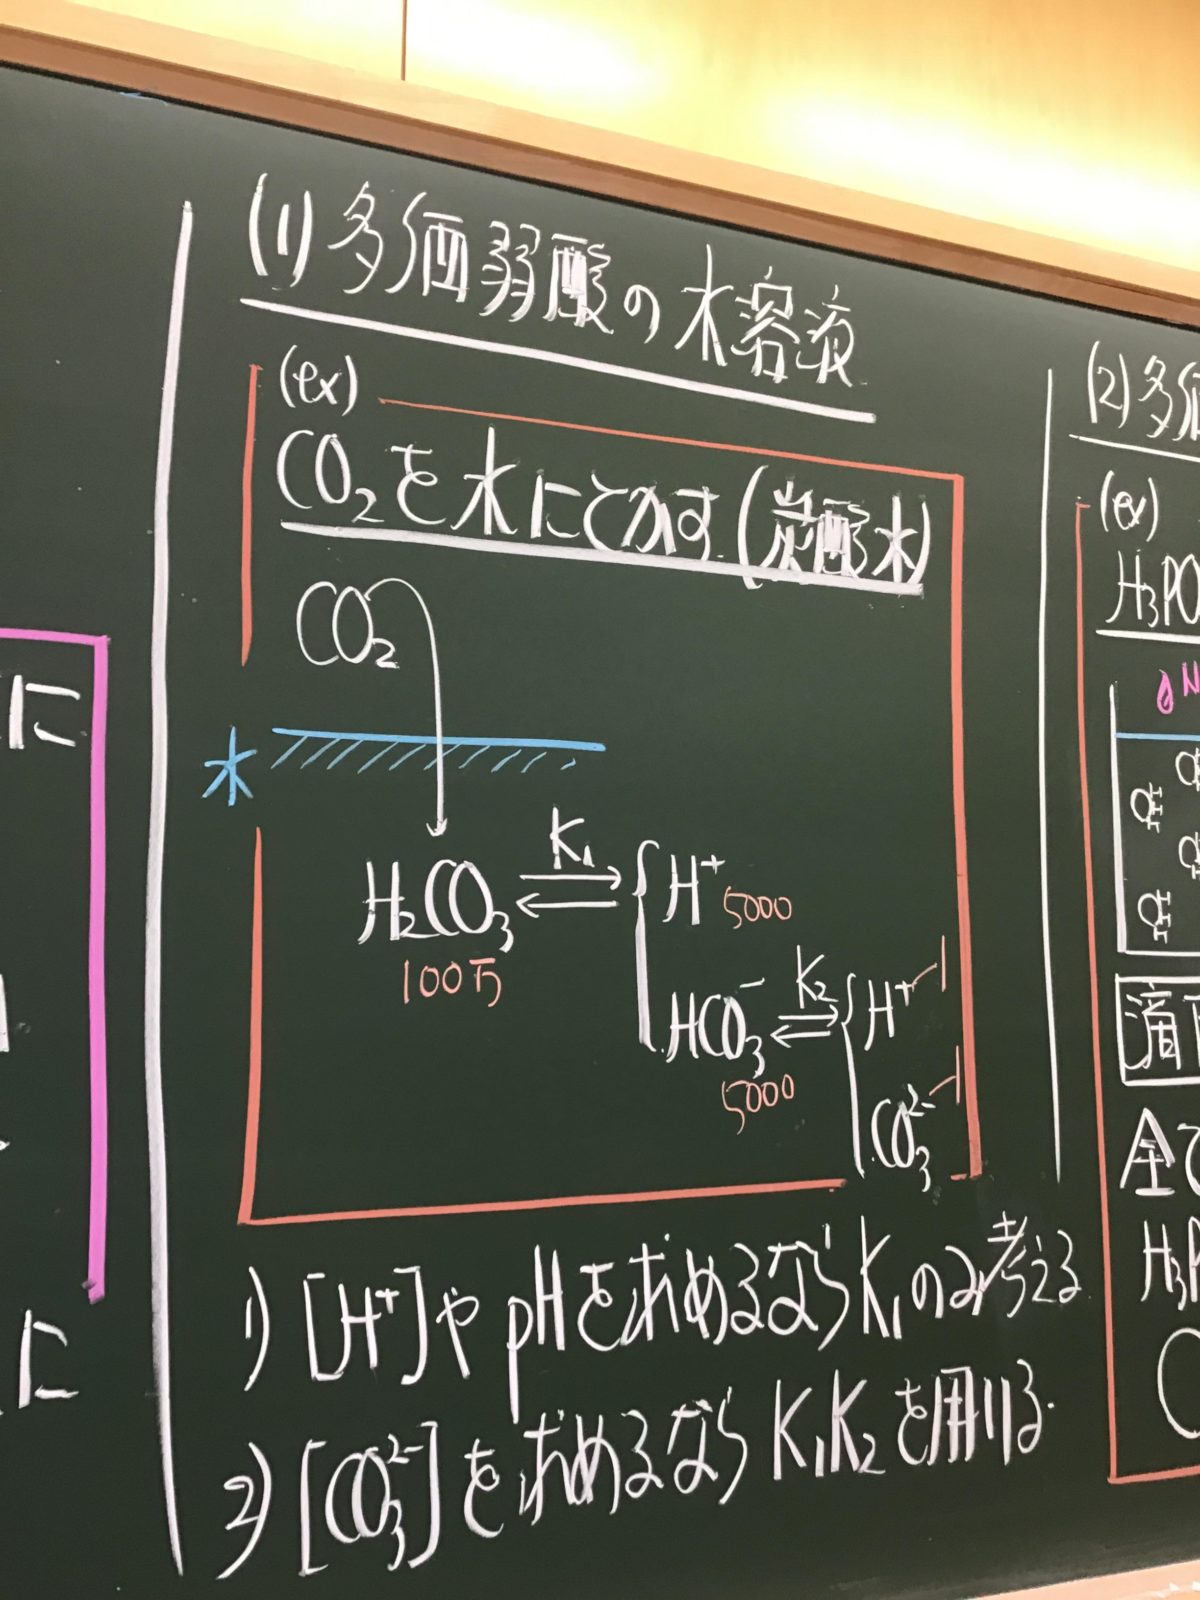 に
に
(1) 多価弱酸の水溶液
(ex)
CO₂を水にとかす(炭酸水)
CO₂
水
H₂CO₃ ⇄ K₁ { H⁺ 5000
100万
HCO₃⁻ ⇄ K₂ { H⁺ 1
5000
CO₃²⁻ 1
1) [H⁺]や pHを求めるなら K₁のみ考える
2) [CO₃²⁻]を求めるなら K₁K₂を用いる.
(2) 多価
(ex)
H₃PO
N
滴下
全て
H₃P